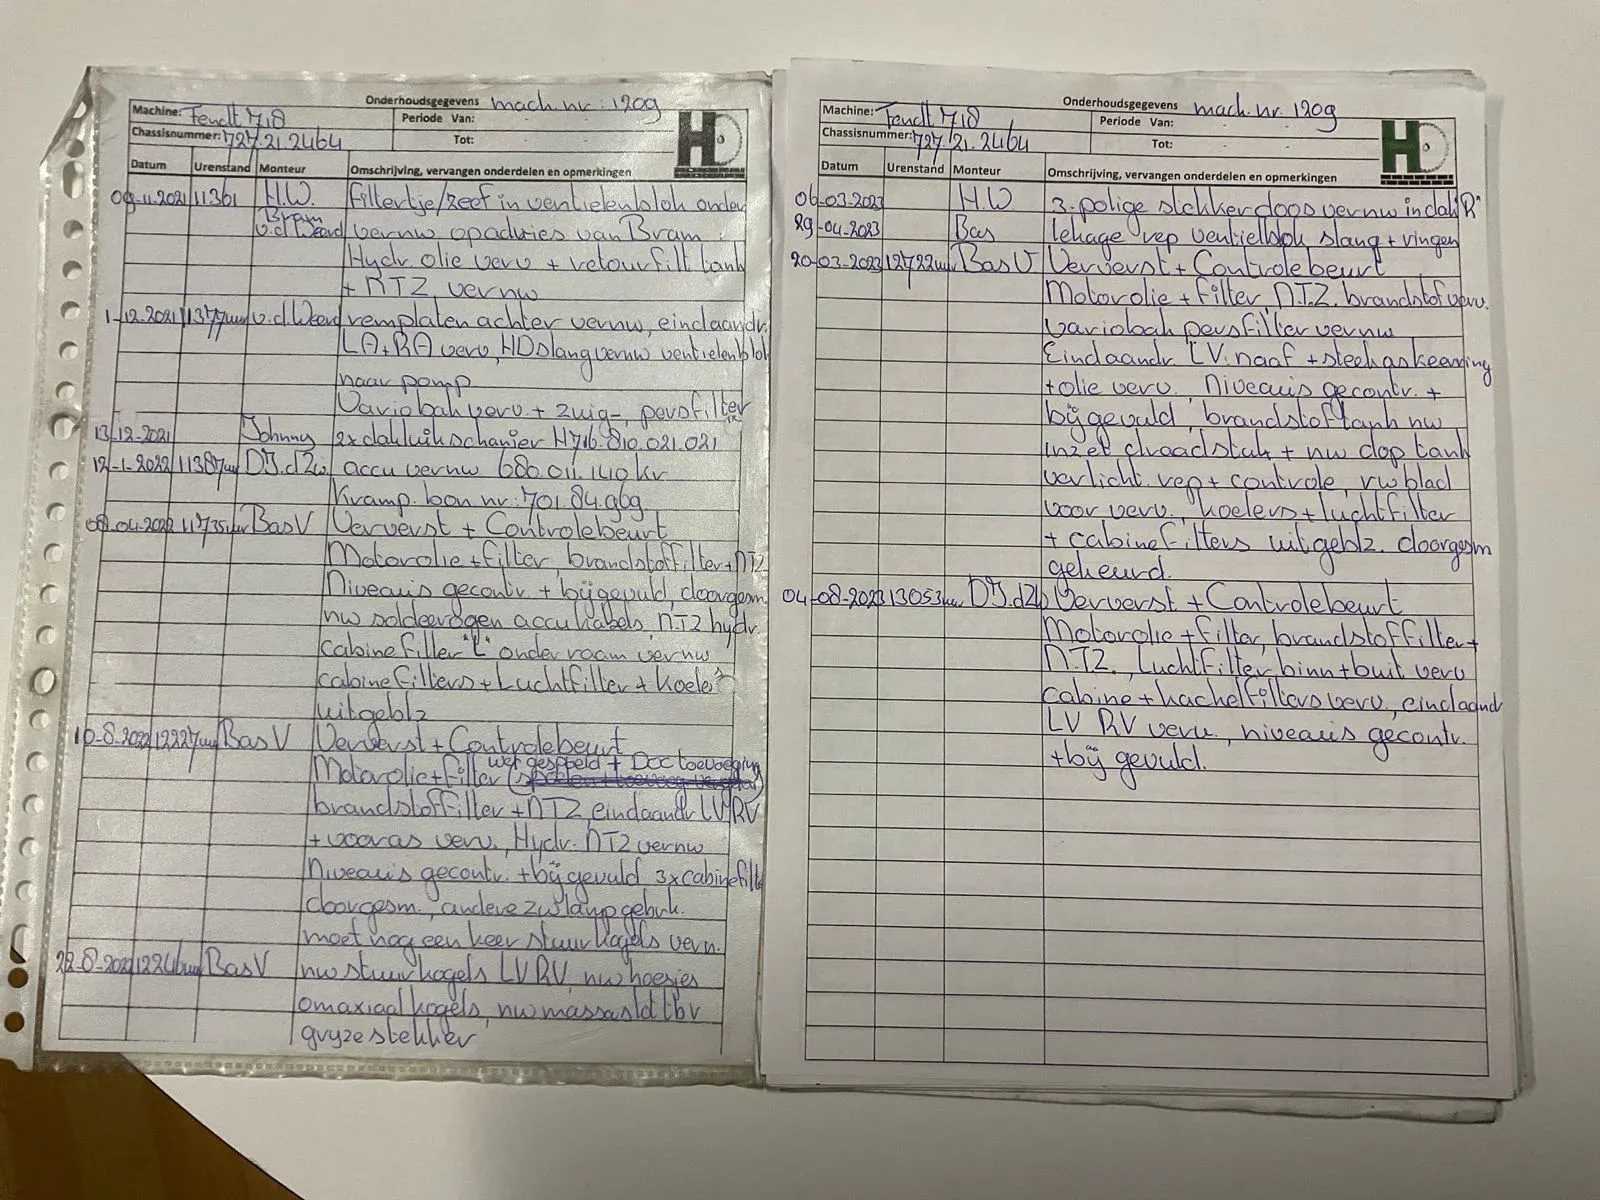 Onderhoudsgegevens mach. nr.: 1209
Machine: Fendt 718
Periode Van: - -
Chassisnummer: 727.21.2464
Tot: - -
Datum Urenstand Monteur Omschrijving, vervangen onderdelen en opmerkingen
09-11-2021 11361 H.W. Filtertje/zeef in ventielenblok onder
Bram v.d. Weerd vernw op advies van Bram
Hydr. olie verv + retourfilt tank
+ NTZ vernw
1-12-2021 11377uur v.d. Weerd remplaten achter vernw, eindaandr.
LA+RA verv, HD slang vernw ventielenblok
naar pomp
Variobak verv. + zuig-, persfilter
13-12-2021 Johnny 2x dakluik scharnier H716.810.021.021
12-1-2022 11387uur DJ.d2w accu vernw 680.011.140 kr
Kramp. bon nr: 701.84.969
08-04-2022 11735uur Bas V Ververst + Controlebeurt
Motorolie + filter, brandstoffilter + NTZ
Niveau's gecontr. + bijgevuld, doorgesm.
nw soldeerogen accukabels, NTZ hydr.
Cabinefilter "L" onder raam vernw
cabinefilters + Luchtfilter + Koeler
uitgeblz
10-8-2022 12227uur Bas V Ververst + Controlebeurt
wer gespoeld + Doc toevoeging
Motorolie + filter
brandstoffilter + NTZ, eindaandr LV RV
+ vooras verv., Hydr. NTZ vernw
Niveau's gecontr. + bijgevuld 3x cabinefilt
doorgesm., andere zw lamp gebrk.
moet nog een keer stuurkogels vern.
22-8-2022 12246uur Bas V nw stuurkogels LV RV, nw hoesjes
om axiaalkogels, nw massa sld tbv
gryze stekker
Onderhoudsgegevens mach. nr. 1209
Machine: Fendt 718
Periode Van: - -
Chassisnummer: 727.21.2464
Tot: - -
Datum Urenstand Monteur Omschrijving, vervangen onderdelen en opmerkingen
06-03-2023 H.W 3-polige stekkerdoos vernw in dak "R"
29-04-2023 Bas lekage rep ventielblok slang + ringen
20-03-2023 12722uur Bas V Ververst + Controlebeurt
Motorolie + filter, N.T.Z. brandstof verv.
Variobak persfilter vernw
Eindaandr. LV. naaf + steekaskeerring
+ olie verv. Niveau's gecontr. +
bijgevuld, brandstoftank nw
inzet draadstuk + nw dop tank
verlicht. rep + controle, rw blad
voor verv., koelers + luchtfilter
+ cabinefilters uitgeblz. doorgesm
gekeurd.
04-08-2023 13053uur DJ.d2w Ververst + Controlebeurt
Motorolie + filter, brandstoffilter +
NTZ., Luchtfilter binn + buit verv
cabine + kachelfilters verv., eindaandr
LV RV verv., niveau's gecontr.
+ bijgevuld.